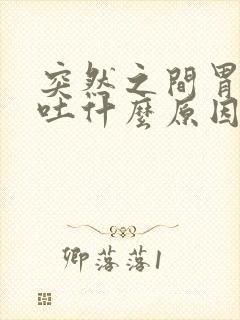 突然之間胃
吐什麼原因
卿落落1